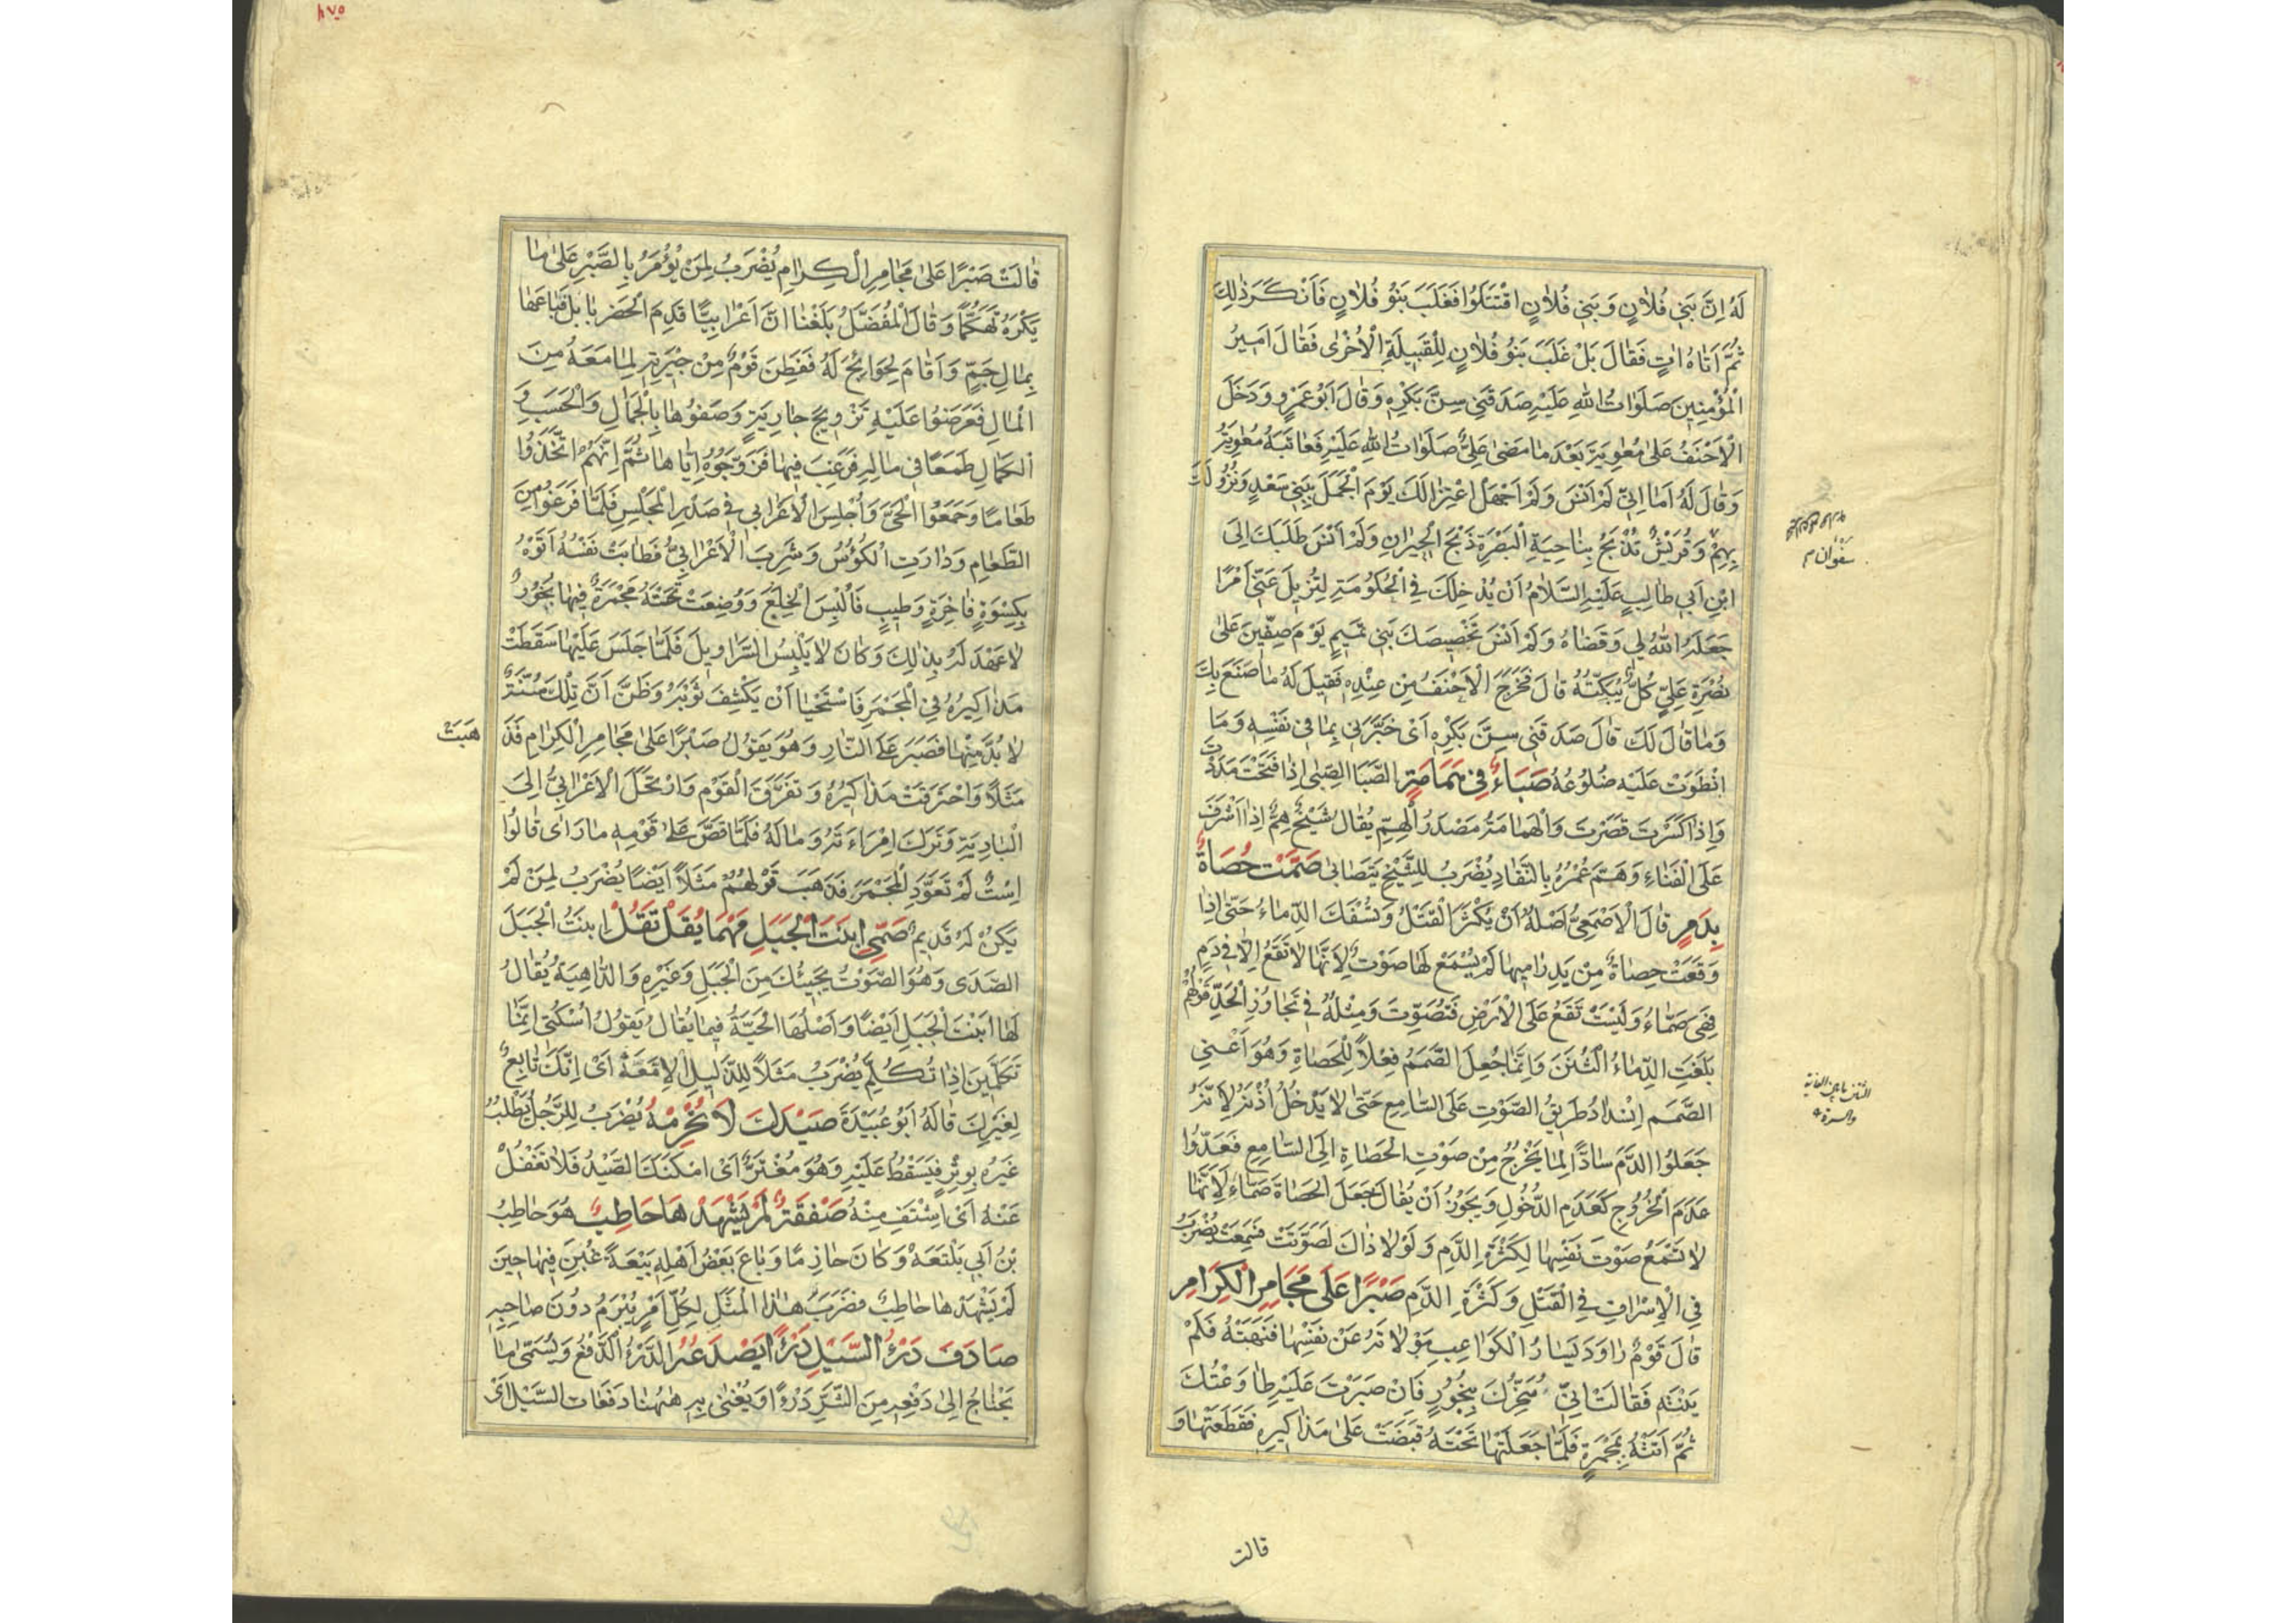 لَهُ اِنَّ بَنِي فُلَانٍ وَبَنِي فُلَانٍ اقْتَتَلُوا فَغَلَبَ بَنُو فُلَانٍ فَاَنْكَرَ ذٰلِكَ
ثُمَّ اَتَاهُ اٰتٍ فَقَالَ بَلْ غَلَبَ بَنُو فُلَانٍ لِلْقَبِيلَةِ الْاُخْرٰى فَقَالَ اَمِيرُ
الْمُؤْمِنِينَ صَلَوَاتُ اللهِ عَلَيْهِ صَدَقَنِي سِنَّ بَكْرِهِ وَقَالَ اَبُو عَمْرٍو وَدَخَلَ
الْاَحْنَفُ عَلٰى مُعٰوِيَةَ بَعْدَ مَا مَضٰى عَلِيٌّ صَلَوَاتُ اللهِ عَلَيْهِ فَعَاتَبَهُ مُعٰوِيَةُ
وَقَالَ لَهُ اَمَا اِنِّي لَمْ اَنْسَ وَلَمْ اَجْهَلْ اعْتِزَالَكَ يَوْمَ الْجَمَلِ بِبَنِي سَعْدٍ وَنُزُولَكَ
بِهِمْ وَقُرَيْشٌ تُذْبَحُ بِنَاحِيَةِ الْبَصْرَةِ ذَبْحَ الْحِيرَانِ وَلَمْ اَنْسَ طَلَبَكَ اِلَى
ابْنِ اَبِي طَالِبٍ عَلَيْهِ السَّلَامُ اَنْ يُدْخِلَكَ فِي الْحُكُومَةِ لِتُزِيلَ عَنِّي اَمْرًا
جَعَلَهُ اللهُ لِي وَقَضَاهُ وَلَمْ اَنْسَ تَحْضِيضَكَ بَنِي تَمِيمٍ يَوْمَ صِفِّينَ عَلٰى
نُصْرَةِ عَلِيٍّ كُلٌّ يُبَكِّتُهُ قَالَ فَخَرَجَ الْاَحْنَفُ مِنْ عِنْدِهِ فَقِيلَ لَهُ مَا صَنَعَ بِكَ
وَمَا قَالَ لَكَ قَالَ صَدَقَنِي سِنَّ بَكْرِهِ اَىْ خَبَّرَنِي بِمَا فِي نَفْسِهِ وَمَا
انْطَوَتْ عَلَيْهِ ضُلُوعُهُ صَبَاءٌ فِي هَمَامَةٍ الصَّبَا الصِّبٰى اِذَا فَتَحْتَ مَدَدْتَ
وَاِذَا كَسَرْتَ قَصَرْتَ وَالْهَمَامَةُ مَصْدَرُ الْهِمِّ يُقَالُ شَيْخٌ هِمٌّ اِذَا اَشْرَفَ
عَلَى الْفَنَاءِ وَهَمَّ عُمْرُهُ بِالنَّفَادِ يُضْرَبُ لِلشَّيْخِ يَتَصَابٰى صَمَّتْ حَصَاةٌ
بِدَمٍ قَالَ الْاَصْمَعِيُّ اَصْلُهُ اَنْ يَكْثُرَ الْقَتْلُ وَتُسْفَكَ الدِّمَاءُ حَتّٰى اِذَا
وَقَعَتْ حَصَاةٌ مِنْ يَدِ رَامِيهَا لَمْ يُسْمَعْ لَهَا صَوْتٌ لِاَنَّهَا لَا تَقَعُ اِلَّا فِي دَمٍ
فَهِيَ صَمَّاءُ وَلَيْسَتْ تَقَعُ عَلَى الْاَرْضِ فَتُصَوِّتَ وَمِثْلُهُ فِي تَجَاوُزِ الْحَدِّ قَوْلُهُمْ
بَلَغَتِ الدِّمَاءُ الثُّنَنَ وَاِنَّمَا جُعِلَ الصَّمَمُ فِعْلًا لِلْحَصَاةِ وَهُوَ اَعْنِي
الصَّمَمَ اِنْسِدَادُ طَرِيقِ الصَّوْتِ عَلَى السَّامِعِ حَتّٰى لَا يَدْخُلَ اُذُنَهُ لِاَنَّهُمْ
جَعَلُوا الدَّمَ سَادًّا لِمَا يَخْرُجُ مِنْ صَوْتِ الْحَصَاةِ اِلَى السَّامِعِ فَعَدُّوا
عَدَمَ الْخُرُوجِ كَعَدَمِ الدُّخُولِ وَيَجُوزُ اَنْ يُقَالَ جَعَلَ الْحَصَاةَ صَمَّاءَ لِاَنَّهَا
لَا تَسْمَعُ صَوْتَ نَفْسِهَا لِكَثْرَةِ الدَّمِ وَلَوْلَا ذَاكَ لَصَوَّتَتْ فَسَمِعَتْ يُضْرَبُ
فِي الْاِسْرَافِ فِي الْقَتْلِ وَكَثْرَةِ الدَّمِ صَبْرًا عَلٰى مَجَامِرِ الْكِرَامِ
قَالَ قَوْمٌ رَاوَدَ يَسَارُ الْكَوَاعِبِ مَوْلَاتَهُ عَنْ نَفْسِهَا فَنَهَتْهُ فَلَمْ
يَنْتَهِ فَقَالَتْ اِنِّي مُبَخِّرُكَ بِبَخُورٍ فَاِنْ صَبَرْتَ عَلَيْهِ طَاوَعْتُكَ
ثُمَّ اَتَتْهُ بِمِجْمَرَةٍ فَلَمَّا جَعَلَتْهَا تَحْتَهُ قَبَضَتْ عَلٰى مَذَاكِيرِهِ فَقَطَعَتْهَا وَ
سَفَوَان م
قالت
قَالَتْ صَبْرًا عَلٰى مَجَامِرِ الْكِرَامِ يُضْرَبُ لِمَنْ يُؤْمَرُ بِالصَّبْرِ عَلٰى مَا
يَكْرَهُ تَهَكُّمًا وَقَالَ الْمُفَضَّلُ بَلَغَنَا اَنَّ اَعْرَابِيًّا قَدِمَ الْحَضَرَ بِاِبِلٍ فَبَاعَهَا
بِمَالٍ جَمٍّ وَاَقَامَ لِحَوَائِجَ لَهُ فَفَطِنَ قَوْمٌ مِنْ جِيرَتِهِ لِمَا مَعَهُ مِنَ
الْمَالِ فَعَرَضُوا عَلَيْهِ تَزْوِيجَ جَارِيَةٍ وَصَفُوهَا بِالْجَمَالِ وَالْحَسَبِ وَ
الْكَمَالِ طَمَعًا فِي مَالِهِ فَرَغِبَ فِيهَا فَزَوَّجُوهُ اِيَّاهَا ثُمَّ اِنَّهُمْ اتَّخَذُوا
طَعَامًا وَجَمَعُوا الْحَيَّ وَاُجْلِسَ الْاَعْرَابِي فِي صَدْرِ الْمَجْلِسِ فَلَمَّا فَرَغُوا مِنَ
الطَّعَامِ وَدَارَتِ الْكُؤُسُ وَشَرِبَ الْاَعْرَابِيُّ فَطَابَتْ نَفْسُهُ اَتَوْهُ
بِكِسْوَةٍ فَاخِرَةٍ وَطِيبٍ فَاُلْبِسَ الْخِلَعَ وَوُضِعَتْ تَحْتَهُ مِجْمَرَةٌ فِيهَا بَخُورٌ
لَا عَهْدَ لَهُ بِذٰلِكَ وَكَانَ لَا يَلْبَسُ السَّرَاوِيلَ فَلَمَّا جَلَسَ عَلَيْهَا سَقَطَتْ
مَذَاكِيرُهُ فِي الْمِجْمَرِ فَاسْتَحْيَا اَنْ يَكْشِفَ ثَوْبَهُ وَظَنَّ اَنَّ تِلْكَ سُنَّةٌ
لَا بُدَّ مِنْهَا فَصَبَرَ عَلَى النَّارِ وَهُوَ يَقُولُ صَبْرًا عَلٰى مَجَامِرِ الْكِرَامِ فَذَ
هَبَتْ
مَثَلًا وَاحْتَرَقَتْ مَذَاكِيرُهُ وَتَفَرَّقَ الْقَوْمُ وَارْتَحَلَ الْاَعْرَابِيُّ اِلَى
الْبَادِيَةِ وَتَرَكَ امْرَاَتَهُ وَمَالَهُ فَلَمَّا قَصَّ عَلٰى قَوْمِهِ مَا رَاٰى قَالُوا
اِسْتٌ لَمْ تَعَوَّدِ الْمِجْمَرَ فَذَهَبَ قَوْلُهُمْ مَثَلًا اَيْضًا يُضْرَبُ لِمَنْ لَمْ
يَكُنْ لَهُ قَدِيمٌ صَمِّي ابْنَتَ الْجَبَلِ مَهْمَا يُقَلْ تَقُلْ ابْنَتُ الْجَبَلِ
الصَّدٰى وَهُوَ الصَّوْتُ يُجِيبُكَ مِنَ الْجَبَلِ وَغَيْرِهِ وَالدَّاهِيَةُ يُقَالُ
لَهَا ابْنَتُ الْجَبَلِ اَيْضًا وَاَصْلُهَا الْحَيَّةُ فِيمَا يُقَالُ يَقُولُ اسْكُتِي اِنَّمَا
تَكَلَّمِينَ اِذَا تُكُلِّمَ يُضْرَبُ مَثَلًا لِلذَّلِيلِ الْاِمَّعَةِ اَىْ اِنَّكَ تَابِعٌ
لِغَيْرِكَ قَالَهُ اَبُو عُبَيْدَةَ صَيْدَكَ لَا تُحْرَمْهُ يُضْرَبُ لِلرَّجُلِ يَطْلُبُ
غَيْرَهُ بِوِتْرٍ فَيَسْقُطُ عَلَيْهِ وَهُوَ مُغْتَرٌّ اَىْ اَمْكَنَكَ الصَّيْدُ فَلَا تَغْفُلْ
عَنْهُ اَىِ اشْتَفِ مِنْهُ صَفْقَةٌ لَمْ يَشْهَدْهَا حَاطِبٌ هُوَ حَاطِبُ
بْنُ اَبِي بَلْتَعَةَ وَكَانَ حَازِمًا وَبَاعَ بَعْضُ اَهْلِهِ بَيْعَةً غُبِنَ فِيهَا حِينَ
لَمْ يَشْهَدْهَا حَاطِبٌ فَضُرِبَ هٰذَا الْمَثَلُ لِكُلِّ اَمْرٍ يُبْرَمُ دُونَ صَاحِبِهِ
صَادَفَ دَرْءُ السَّيْلِ دَرْءًا يَصْدَعُهُ الدَّرْءُ الدَّفْعُ وَيُسَمّٰى مَا
يَحْتَاجُ اِلٰى دَفْعِهِ مِنَ الشَّرِّ دَرْءًا وَيُعْنٰى بِهِ هٰهُنَا دَفَعَاتُ السَّيْلِ اَىْ